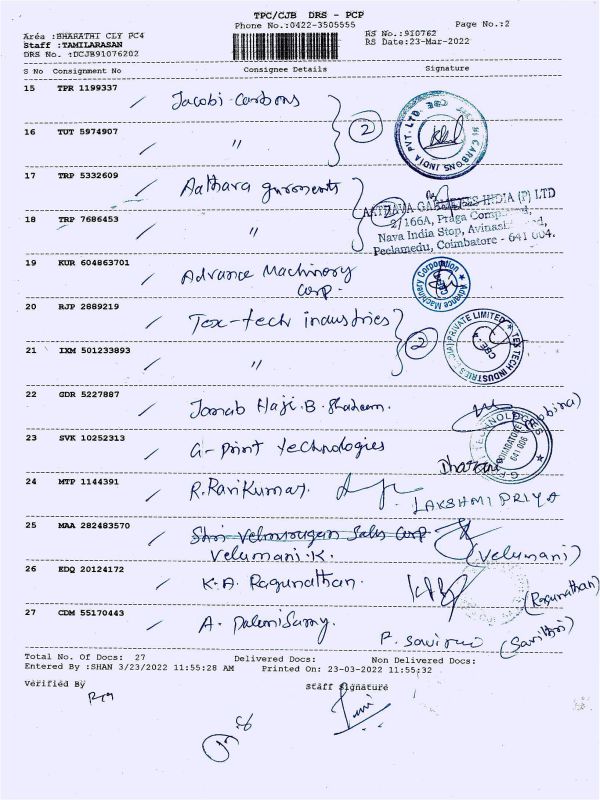 TPC/CJB DRS - PCP
Phone No.:0422-3505555
Page No.:2
Area :BHARATHI CLY PC4
Staff :TAMILARASAN
DRS No. :DCJB91076202
RS No.:910762
RS Date:23-Mar-2022
S No Consignment No Consignee Details Signature
15 TPR 1199337 Jacobi Carbons
2
CARBONS INDIA PVT. LTD.
16 TUT 5974907 "
17 TRP 5332609 Aathava garments
AATHAVA GARMENTS INDIA (P) LTD
2/166A, Praga
Nava India Stop, Avinashi
Peelamedu, Coimbatore - 641 004.
18 TRP 7686453 "
19 KUR 604863701 Advance Machinery
Corp.
Advance Machinery Corporation
20 RJP 2689219 Tex-tech industries
2
TEX TECH INDUSTRIES PRIVATE LIMITED
CBE-4
21 IXM 501233893 "
22 GDR 5227887 Janab Haji.B.
23 SVK 10252313 G-Print technologies
TECHNOLOGIES
COIMBATORE
641 006
24 MTP 1144391 R.Ravikumar.
LAKSHMI PRIYA
25 MAA 282483570 Shri Velmurugan Sales Corp
Velumani.K.
(Velumani)
26 EDQ 20124172 K.A. Ragunathan.
(Ragunathan)
27 CDM 55170443 A. Palanisamy.
P. (Savithri)
Total No. Of Docs: 27 Delivered Docs: Non Delivered Docs:
Entered By :SHAN 3/23/2022 11:55:28 AM Printed On: 23-03-2022 11:55:32
Verified By Staff Signature